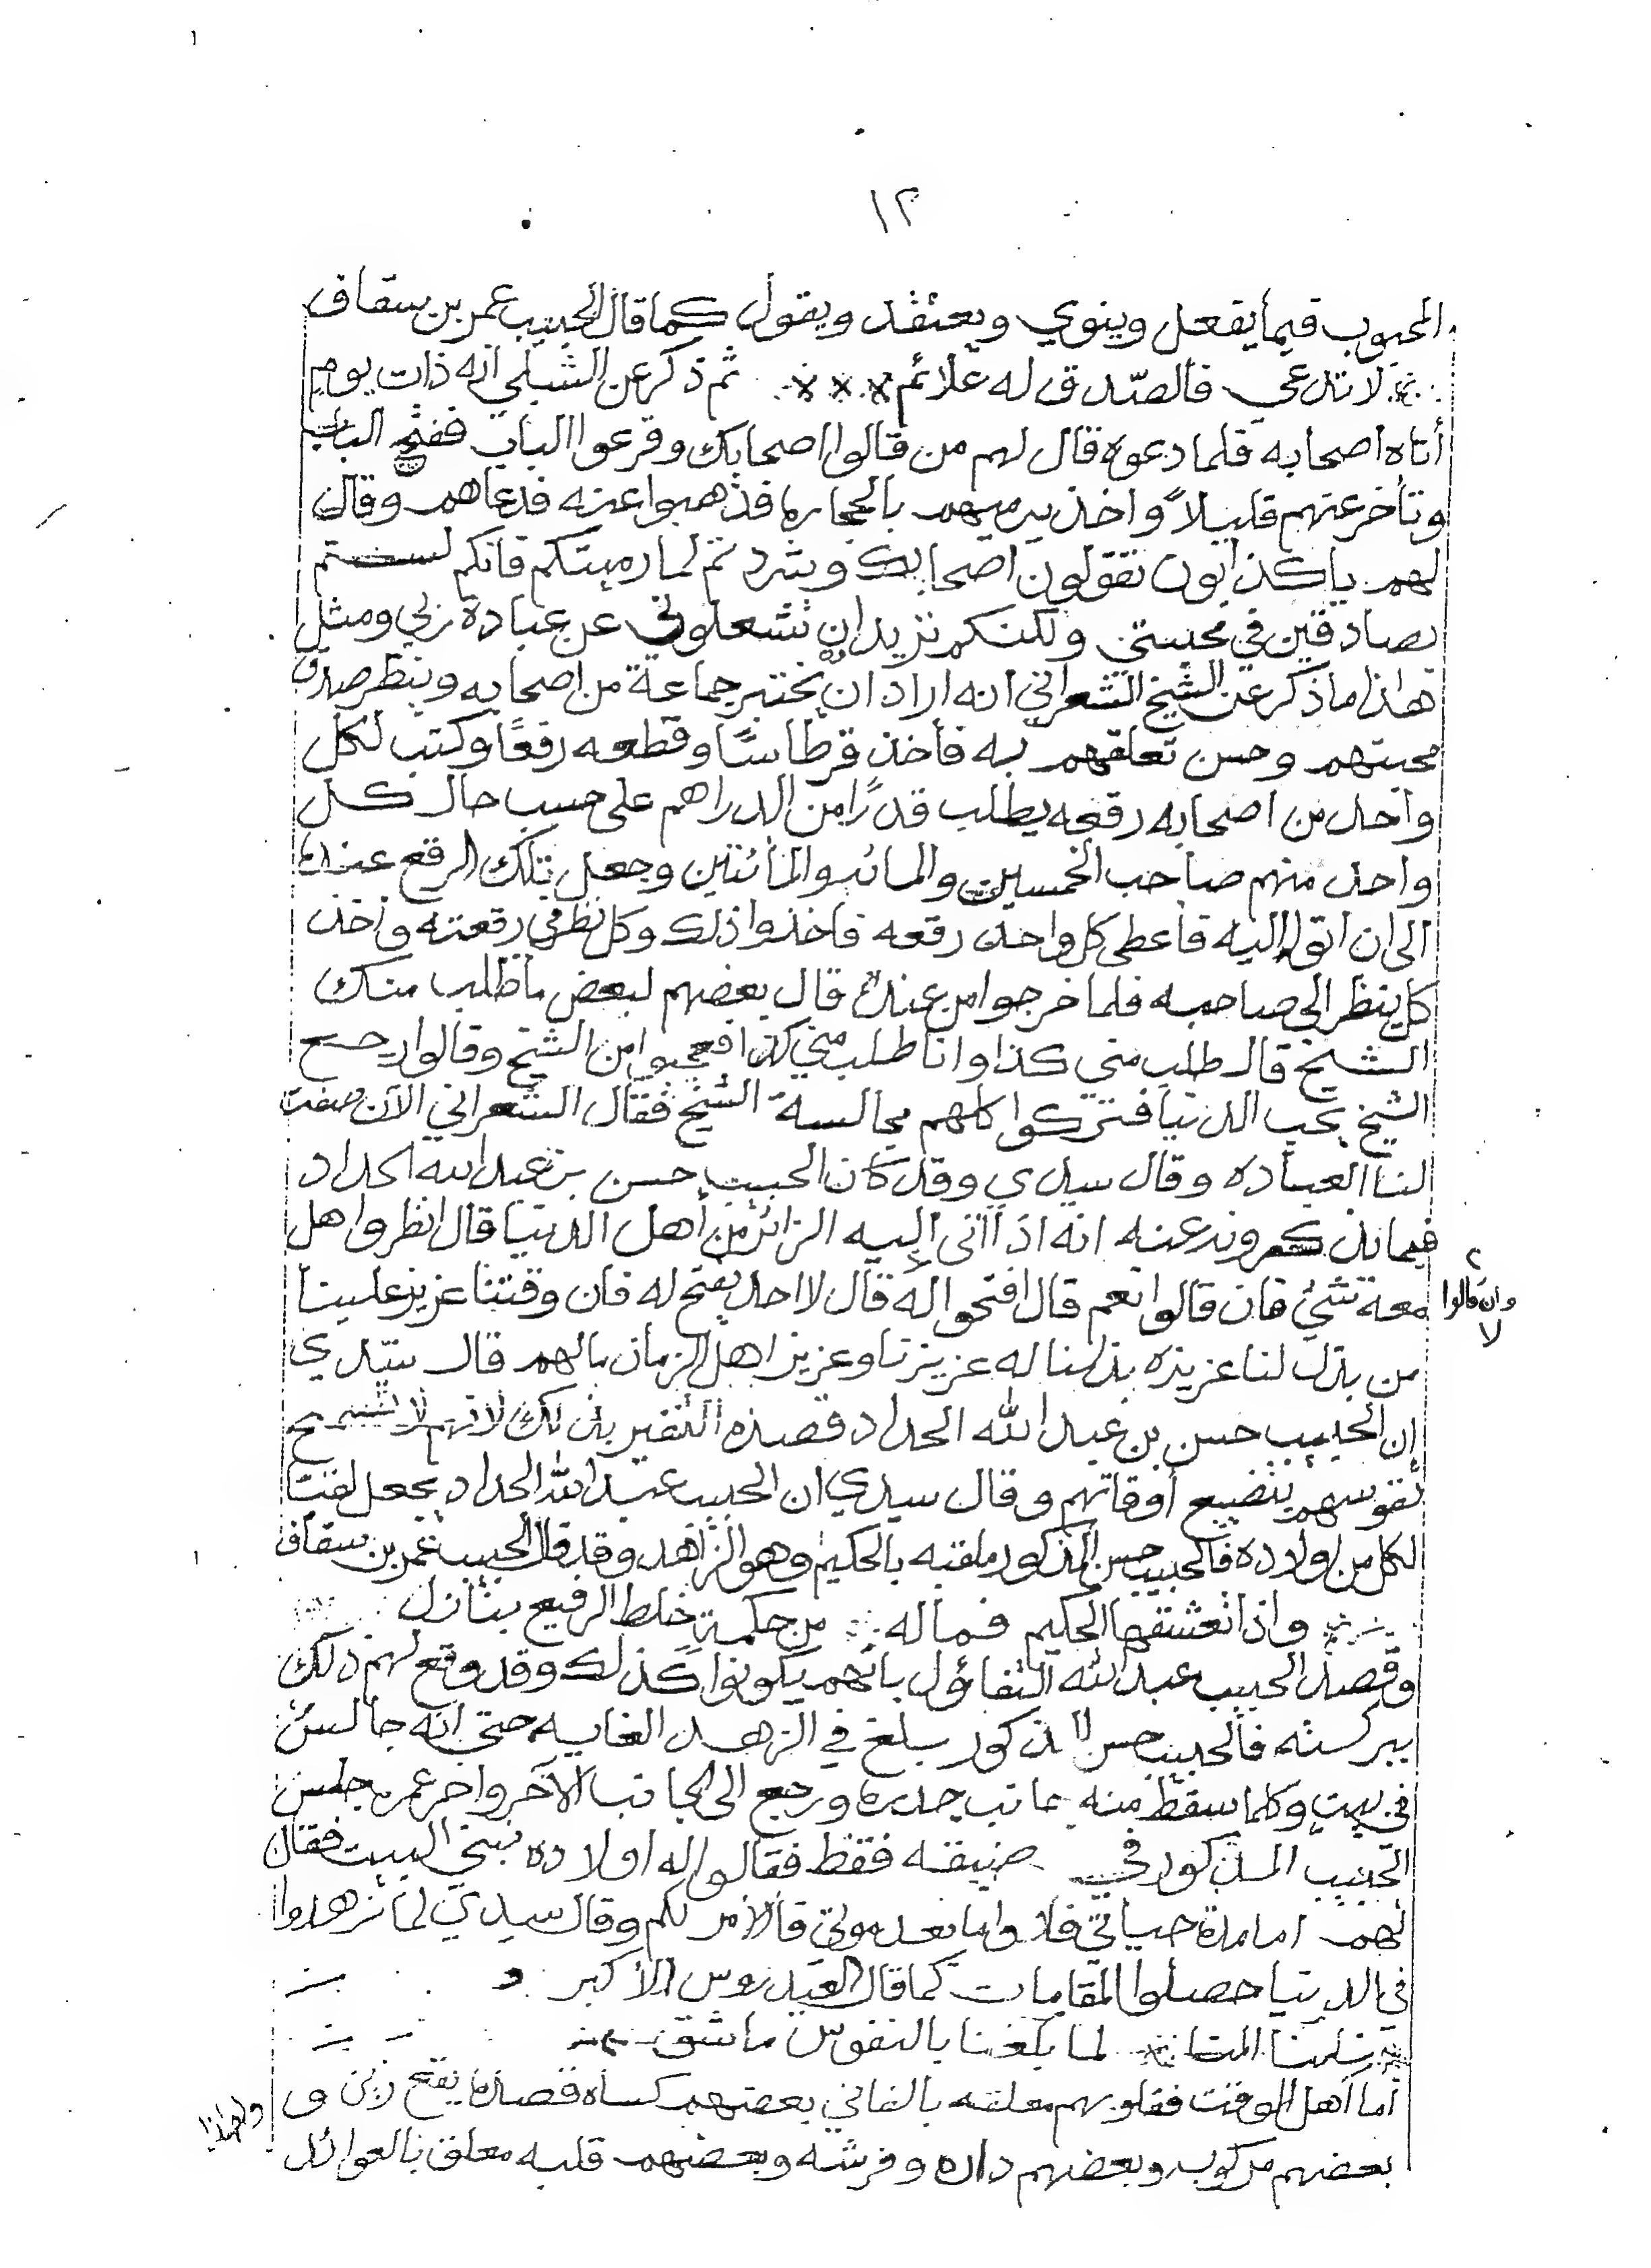 ١٢
المحبوب فيما يفعل وينوي ويعتقد ويقول كما قال الحبيب عمر بن سقاف
لا تدعي فالصدق له علائم ××× ثم ذكر عن الشبلي انه ذات يوم
أتاه اصحابه فلما دعوه قال لهم من قالوا اصحابك وقرعوا الباب ففتح الباب
وتأخر عنهم قليلاً واخذ يرميهم بالحجاره فذهبوا عنه فدعاهم وقال
لهم يا كذابون تقولون اصحابك وشردتم لما رميتكم فانكم لستم
بصادقين في محبتي ولكنكم تريدون ان تشغلوني عن عبادة ربي ومثل
هذا ما ذكر عن الشيخ الشعراني انه اراد ان يختبر جماعة من اصحابه وينظر صدق
محبتهم وحسن تعلقهم به فأخذ قرطاسًا وقطعه رقعًا وكتب لكل
واحد من اصحابه رقعه يطلب قدرًا من الدراهم على حسب حال كل
واحد منهم صاحب الخمسين والمائه والمائتين وجعل تلك الرقع عنده
الى ان اتوا إليه فأعطى كل واحد رقعه فاخذوا ذلك وكل نظر في رقعته وأخذ
كل ينظر الى صاحبه فلما خرجوا من عنده قال بعضهم لبعض ما طلب منك
الشيخ قال طلب مني كذا وانا طلب مني كذا فعجبوا من الشيخ وقالوا رجع
الشيخ يحب الدنيا فتركوا كلهم مجالسة الشيخ فقال الشعراني الآن صفت
لنا العباده وقال سيدي وقد كان الحبيب حسن بن عبدالله الحداد
فيما يذكرونه عنه انه اذا اتى إليه الزائر من أهل الدنيا قال انظروا هل
معه شيئ فان قالوا نعم قال افتحوا له قال لا احد يفتح له فان وقتنا عزيز علينا
وان قالوا لا
من بذل لنا عزيزه بذلنا له عزيزنا وعزيز اهل الزمان مالهم قال سيّدي
إن الحبيب حسن بن عبدالله الحداد قصده التنفير بذلك لانهم لا تسمح
نفوسهم بتضييع أوقاتهم وقال سيدي ان الحبيب عبدالله الحداد يجعل لقبًا
لكل من اولاده فالحبيب حسن المذكور ملقبه بالحكيم وهو الزاهد وقد قال الحبيب عمر بن سقاف
واذا تعشقها الحكيم فما له من حكمة خلط الرفيع بنازل
وقصد الحبيب عبدالله التفاؤل بانهم يكونوا كذلك وقد وقع لهم ذلك
ببركته فالحبيب حسن المذكور بلغ في الزهد الغايه حتى انه جالس
في بيت وكلما سقط منه جانب جدره ورجع الى الجانب الآخر واخر عمره جلس
الحبيب المذكور في ضيقه فقط فقالوا له اولاده نبني البيت فقال
لهم اما مدة حياتي فلا واما بعد موتي فالأمر لكم وقال سيدي لما زهدوا
في الدنيا حصلوا المقامات كما قال العيدروس الأكبر
نلنا المنا لما بلغنا بالنفوس ما شق
أما أهل الوقت فقلوبهم معلقه بالفاني بعضهم كساه قصده يفتح
بعضهم مركوب وبعضهم داره وفرشه وبعضهم قلبه معلق بالعوائد